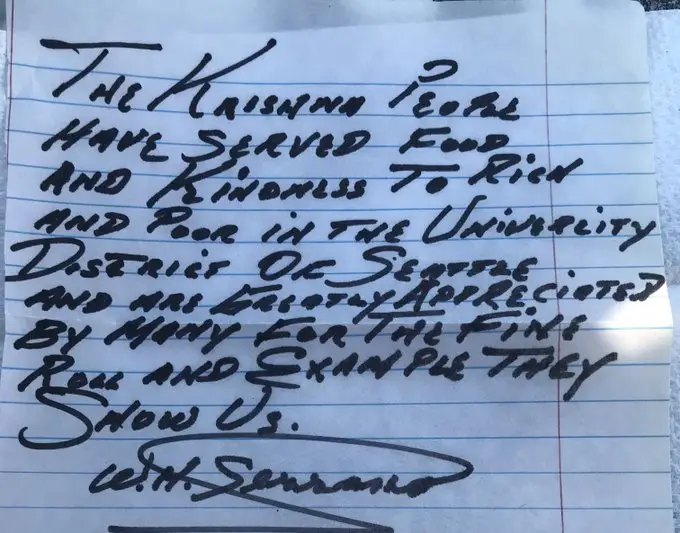 The Krishna People
Have Served Food
And Kindness To Rich
And Poor in the Univercity
District Of Seattle
And are Greatly Appreciated
By Many For The Fine
Roll and Example They
Show Us.
W.H.